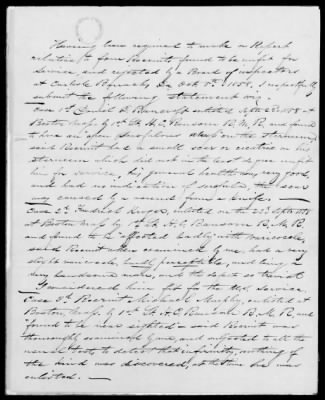 Having been required to make a Report
relative to four Recruits found to be unfit for
service, and rejected by a Board of inspectors
at Carlisle Barracks Pa. Oct 5th 1858. I respectfully
submit the following statement viz:
Case 1st Daniel enlisted Sept 1858 at
Boston Mass by 1st Lt A. C. B.M.R. and found
to have an open Scrofulous ulcer on the sternum,
said Recruit had a small scar or cicatrix on his
sternum which did not in the least degree unfit
him for service, his general health being very good,
and had no indication of scrofula, the scar
was caused by a wound from a knife.
Case 2d Fredrick enlisted on the 22d Sept 1858
at Boston Mass by 1st Lt A. C. B.M.R.
and found to be affected badly with varicocele,
said Recruit when examined by me, had a very
slight varicocele, hardly perceptible, and being a
very handsome man, and the defect so trivial
I considered him fit for the U.S. Service.
Case 3d Recruit Michael Murphy, enlisted at
Boston, Mass. by 1st Lt A. C. B.M.R. and
found to be near sighted - said Recruit was
thoroughly examined by me, and subjected to all the
usual tests, to detect that infirmity, nothing of
the kind was discovered, at the time he was
enlisted.